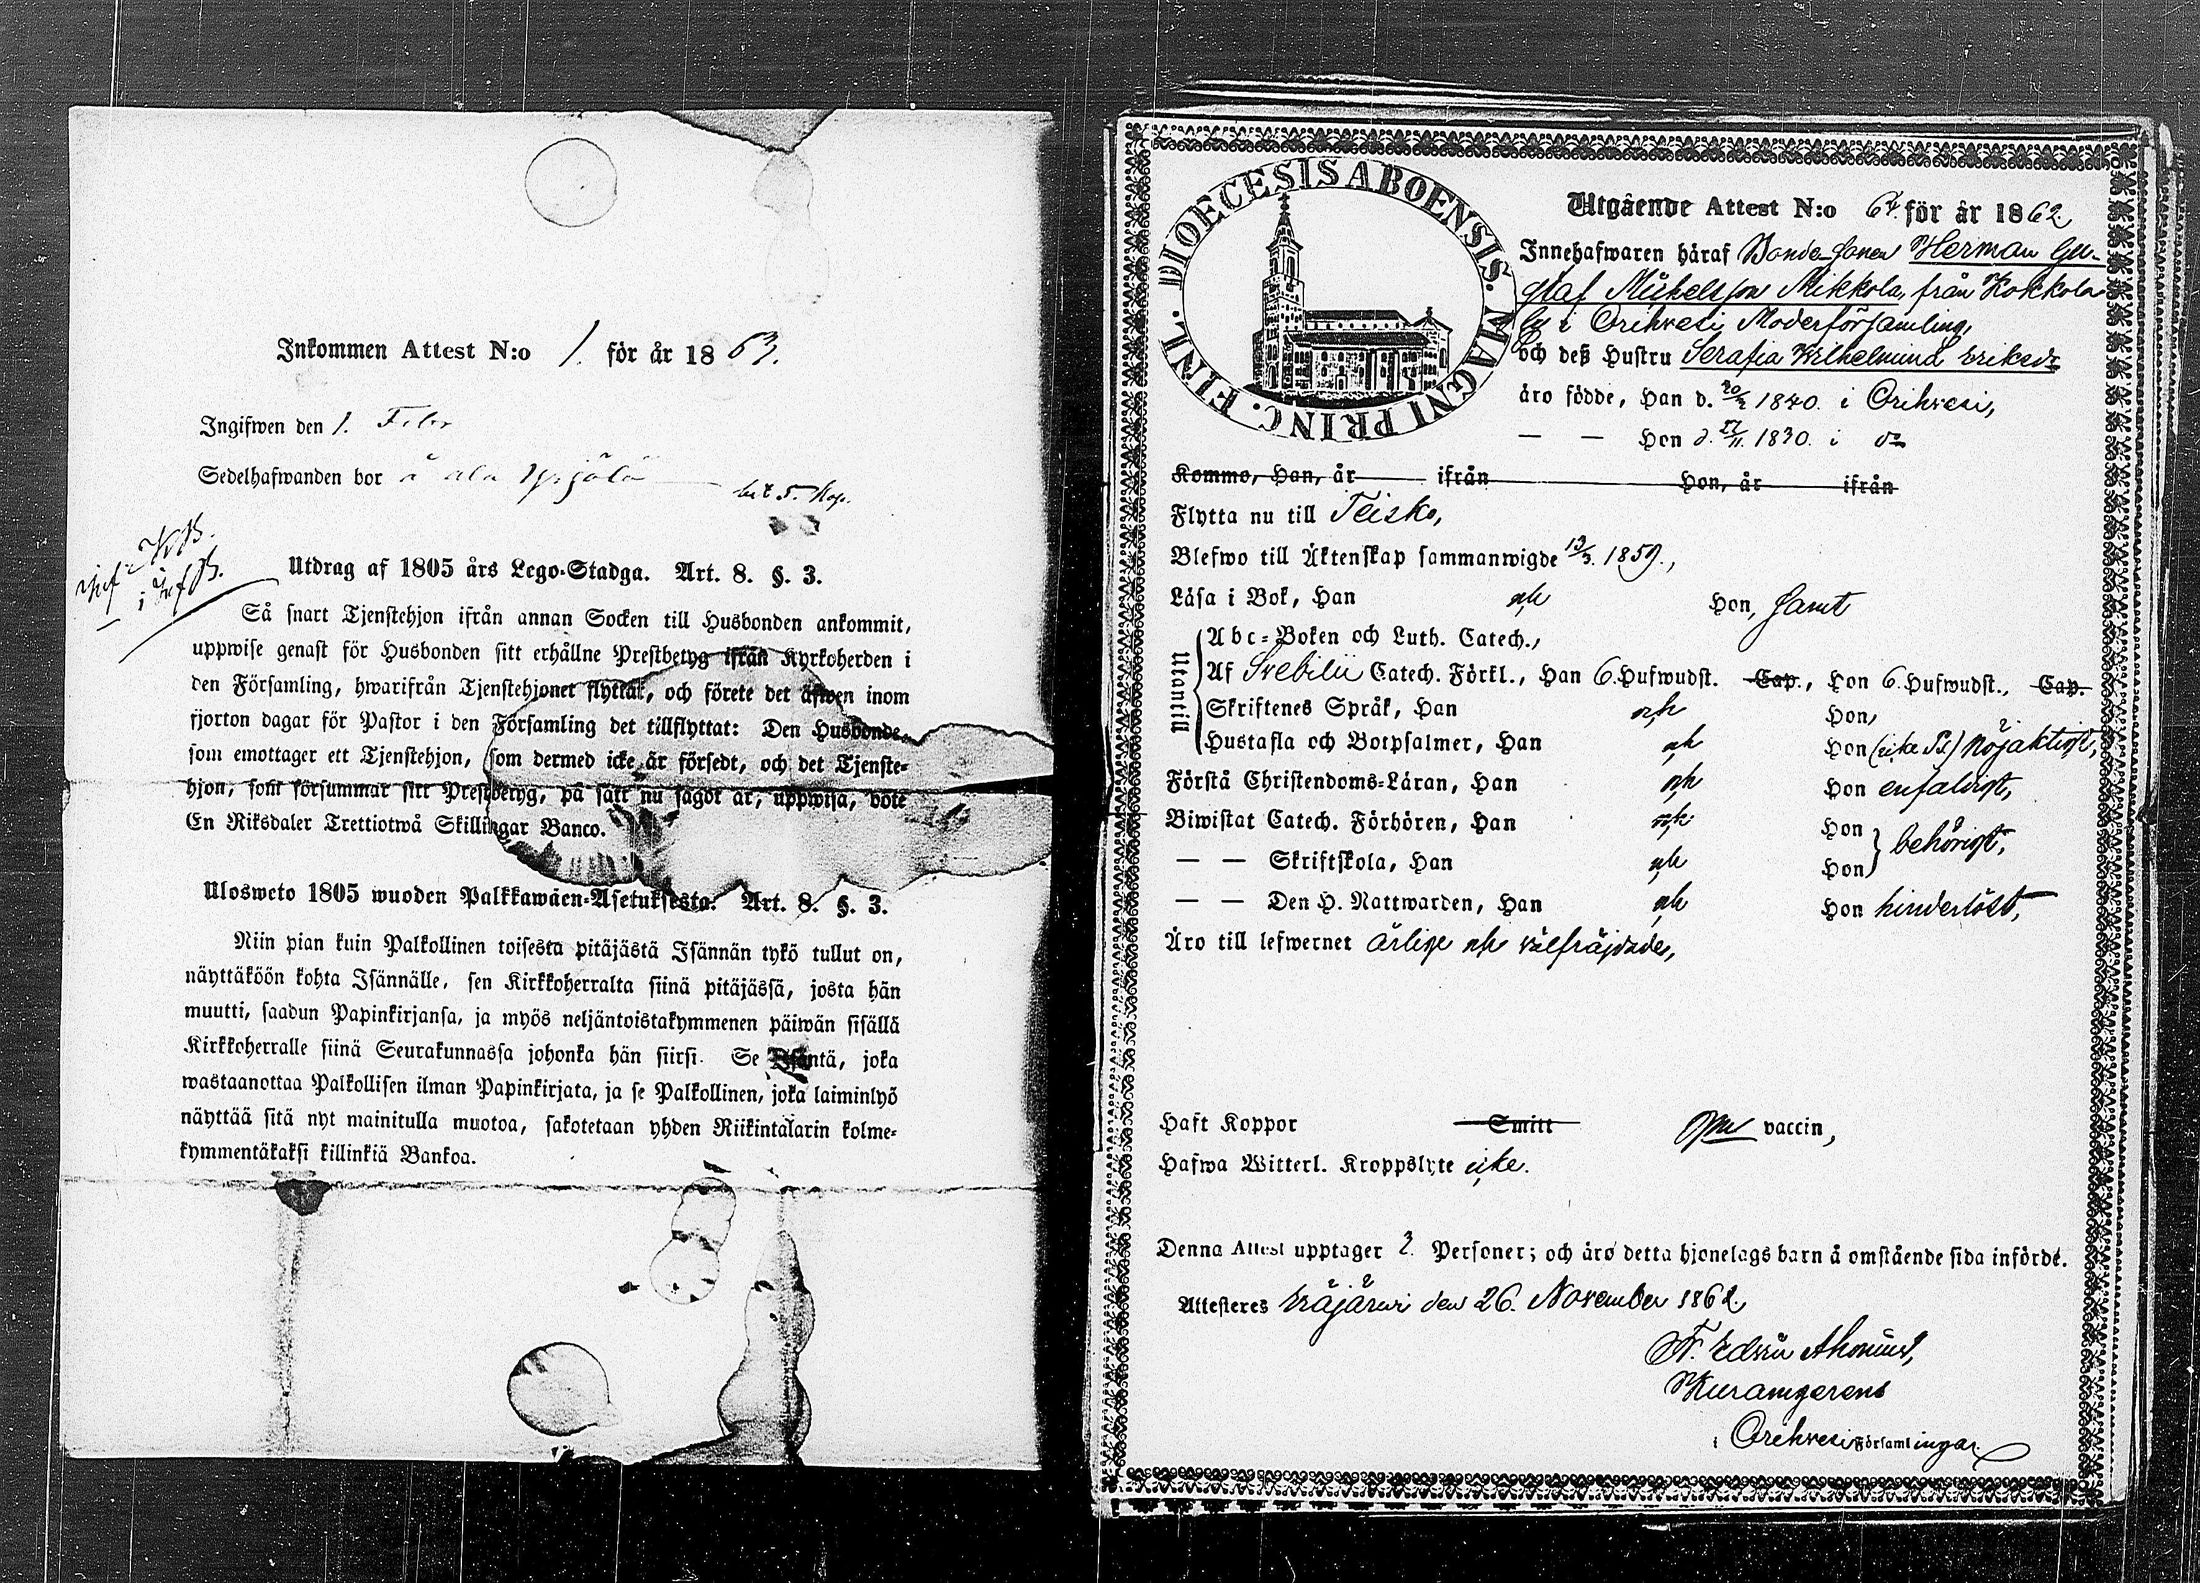 Inkommen Attest N:o 1. för år 1863.
Ingifwen den 1. Febr
Sedelhafwanden bor å Ala Yrjölä
bet 5. Kop.
K.B.
i Inf B.
Utdrag af 1805 års Lego-Stadga. Art. 8. §. 3.
Så snart Tjenstehjon ifrån annan Socken till Husbonden ankommit,
uppwise genast för Husbonden sitt erhållne Prestbetyg ifrån Kyrkoherden i
den Församling, hwarifrån Tjenstehjonet flyttat, och förete det äfwen inom
fjorton dagar för Pastor i den Församling det tillflyttat: Den Husbonde,
som emottager ett Tjenstehjon, som dermed icke är försedt, och det Tjenste-
hjon, som försummar sitt Prestbetyg, på sätt nu sagdt är, uppwisa, böte
En Riksdaler Trettiotwå Skillingar Banco.
Ulosweto 1805 wuoden Palkkawäen-Asetuksesta. Art. 8. §. 3.
Niin pian kuin Palkollinen toisesta pitäjästä Isännän tykö tullut on,
näyttäköön kohta Isännälle, sen Kirkkoherralta siinä pitäjässä, josta hän
muutti, saadun Papinkirjansa, ja myös neljäntoistakymmenen päiwän sisällä
Kirkkoherralle siinä Seurakunnassa johonka hän siirsi. Se Isäntä, joka
wastaanottaa Palkollisen ilman Papinkirjata, ja se Palkollinen, joka laiminlyö
näyttää sitä nyt mainitulla muotoa, sakotetaan yhden Riikintalarin kolme-
kymmentäkaksi killinkiä Bankoa.
FINL. DIOECESIS ABOENSIS. MAGNI PRINC.
Utgående Attest N:o 64 för år 1862
Innehafwaren häraf Bondesonen Herman Gu-
staf Michelsson Mikkola, från Kokkola
by i Orihvesi Moderförsamling,
och deß Hustru Serafia Wilhelmina Eriksdr
äro födde, Han d. 20/2 1840. i Orihvesi,
— — Hon d. 27/11. 1830. i do
Kommo, Han, år ifrån Hon, år ifrån
Flytta nu till Teisko,
Blefwo till Äktenskap sammanwigde 13/3. 1859.,
Läsa i Bok, Han och Hon, samt
Utantill
Abc-Boken och Luth. Catech.,
Af Svebilii Catech. Förkl., Han 6. Hufwudst. Cap., Hon 6. Hufwudst., Cap.
Skriftenes Språk, Han och Hon,
Hustafla och Botpsalmer, Han och Hon (icke Ps.) nöjaktigt,
Förstå Christendoms-Läran, Han och Hon enfaldigt,
Biwistat Catech. Förhören, Han och Hon
— — Skriftskola, Han och Hon behörigt,
— — Den H. Nattwarden, Han och Hon hinderlöst,
Äro till lefwernet ärlige och välfräjdade,
Haft Koppor Smitt gm vaccin,
Hafwa Witterl. Kroppslyte icke.
Denna Attest upptager 2. Personer; och äro detta hjonelags barn å omstående sida införde.
Attesteres Eräjärvi den 26. November 1862
Fr. Edvin Ahonius,
Kuramgerens
i Orihvesi Församlingar.